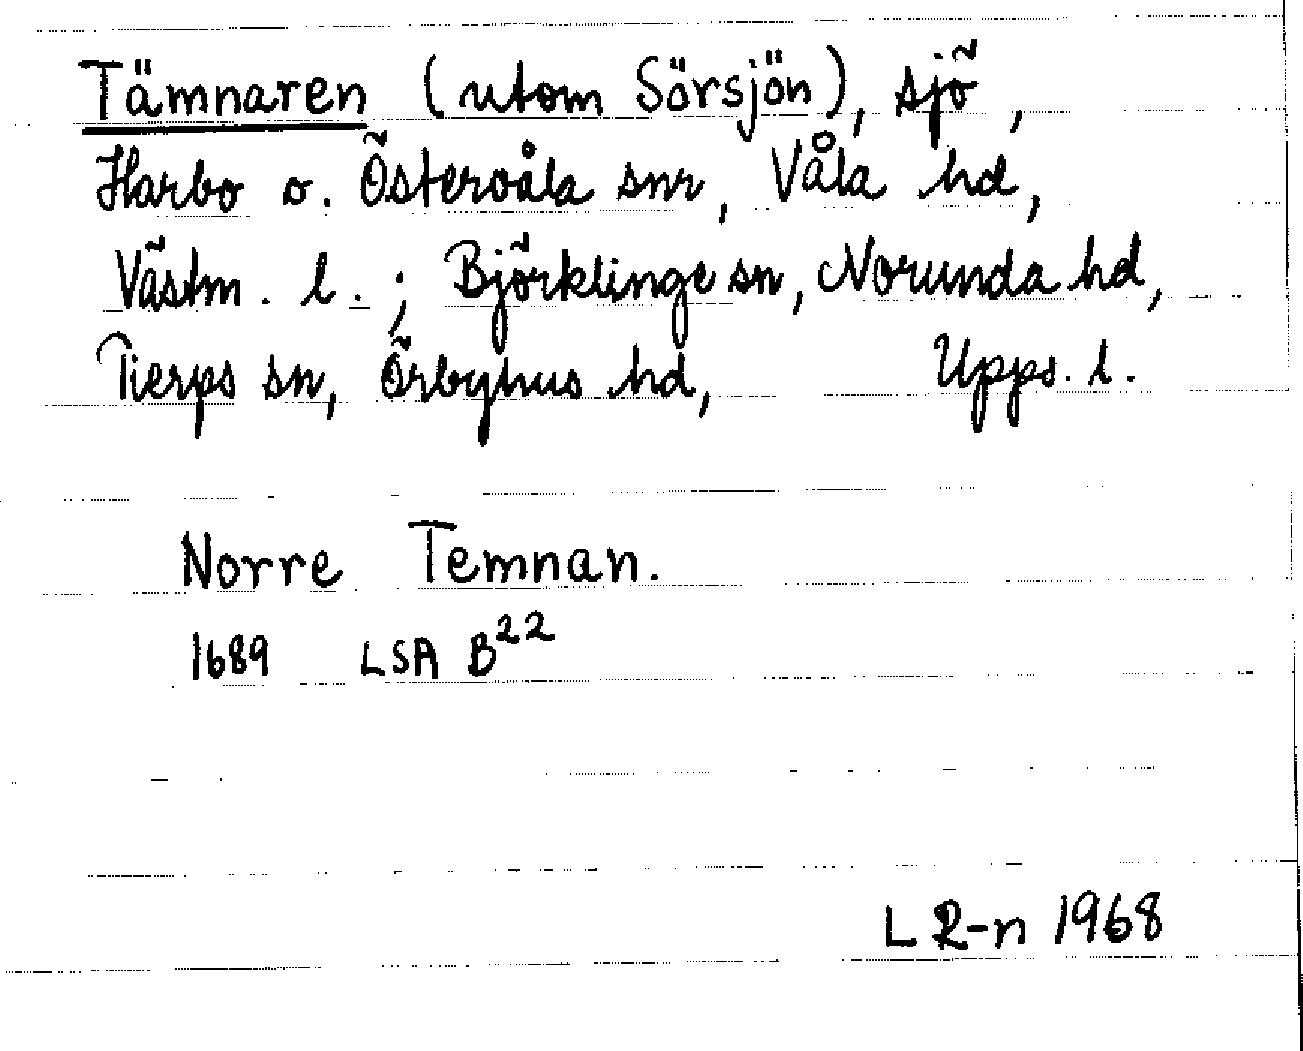 Tämnaren (utom Sörsjön), sjö,
Harbo o. Östervåla snr, Våla hd,
Västm. l.; Björklinge sn, Norunda hd,
Tierps sn, Örbyhus hd, Upps. l.
Norre Temnan.
1689 LSA B²²
L R-n 1968